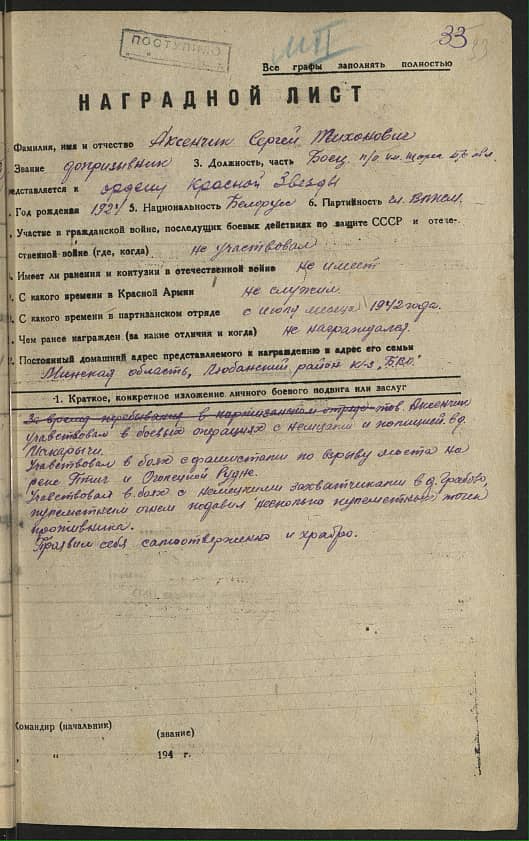 33
33
ПОСТУПИЛО
Все графы заполнять полностью
НАГРАДНОЙ ЛИСТ
Фамилия, имя и отчество Аксенчик Сергей Тихонович
Звание допризывник 3. Должность, часть Боец п/о им. Щорса
едставляется к ордену Красной Звезды
. Год рождения 1924 5. Национальность Белорус 6. Партийность чл. ВЛКСМ
. Участие в гражданской войне, последущих боевых действиях по защите СССР и отече-
ственной войне (где, когда) не участвовал
. Имеет ли ранения и контузии в отечественной войне не имеет
. С какого времени в Красной Армии не служил
. С какого времени в партизанском отряде с июля месяца 1942 года.
. Чем ранее награжден (за какие отличия и когда) не награждался
. Постоянный домашний адрес представляемого к награждению и адрес его семьи
Минская область, Любанский район к-з "БВО"
1. Краткое, конкретное изложение личного боевого подвига или заслуг
За время пребывания в партизанском отряде тов. Аксенчик
участвовал в боевых операциях с немцами и полицией в д.
Макарычи.
Участвовал в боях с фашистами по взрыву моста на
реке Птич и Рудне.
Участвовал в боях с немецкими захватчиками в д.
пулеметным огнем подавил несколько пулеметных точек
противника.
Проявил себя самоотверженно и храбро.
Командир (начальник)
(звание)
" 194 г.